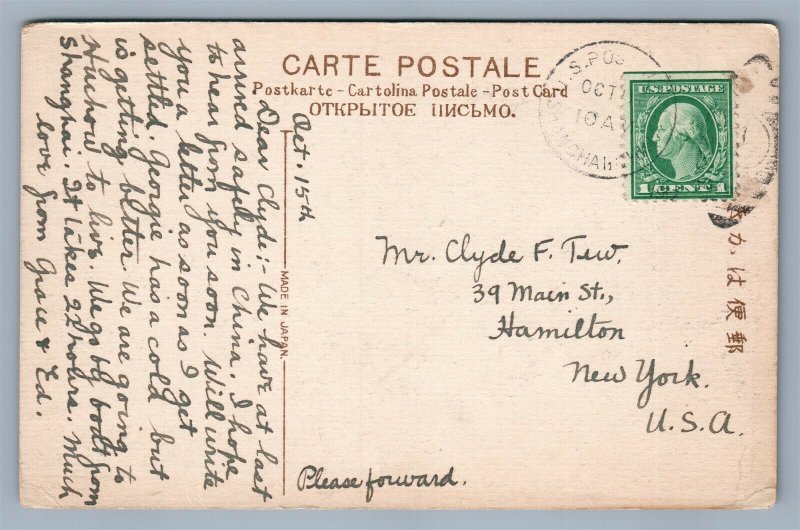 CARTE POSTALE
Postkarte - Cartolina Postale - Post Card
ОТКРЫТОЕ ПИСЬМО.
U.S. POS
OCT
10 AM
U.S. POSTAGE
1 CENT 1
きかは便郵
MADE IN JAPAN.
Oct. 15th
Dear Clyde:- We have at last
arrived safely in China. I hope
to hear from you soon. Will write
you a letter as soon as I get
settled. Georgie has a cold but
is getting better. We are going to
Huchow to live. We go by boat from
Shanghai. It takes 22 hours. Much
love from Grace & Ed.
Mr. Clyde F. Tew.
39 Main St.,
Hamilton
New York.
U.S.A.
Please forward.